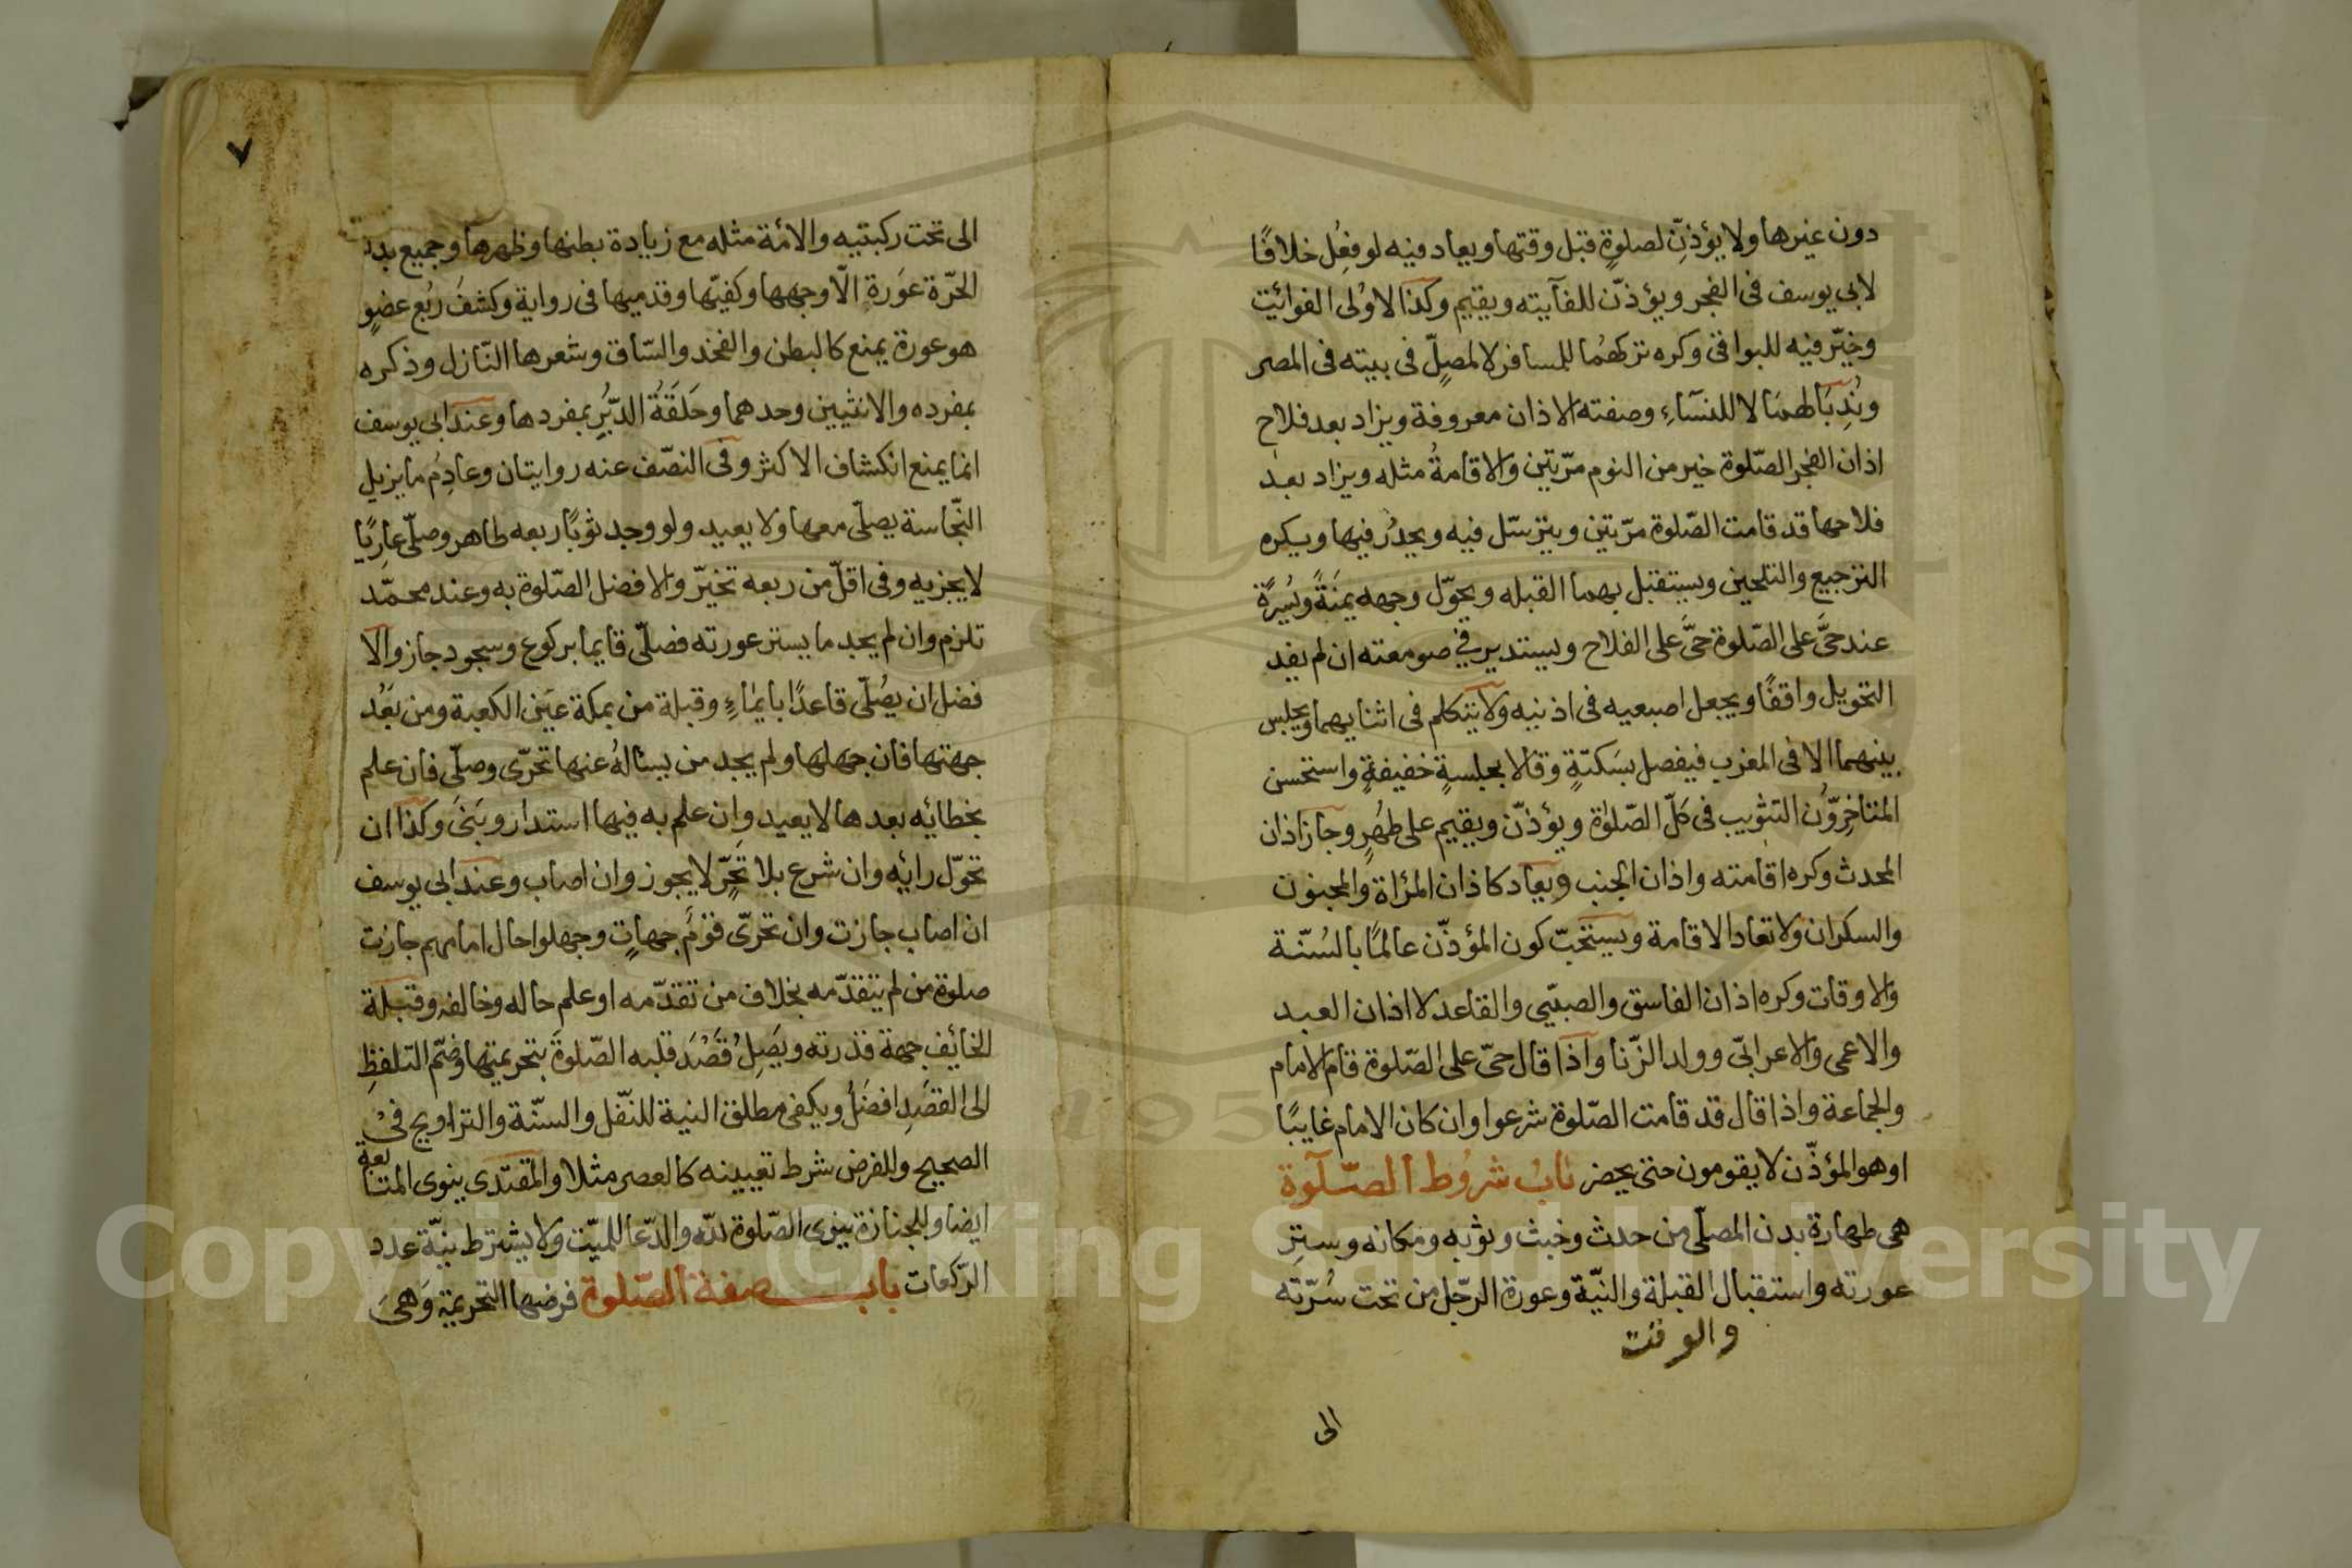 دون غيرها ولا يؤذّن لصلوةٍ قبل وقتها ويعاد فيه لو فعل خلافًا
لابي يوسف فى الفجر ويؤذّن للفآيته ويقيم وكذا لاوُلى الفوائت
وخيّر فيه للبواقى وكره تركهُما للمسافر لا لمصلٍّ فى بيته فى المصر
ونُدِبَا لهما لا للنسآءِ وصفته الاذان معروفة ويزاد بعد فلاح
اذان الفجر الصّلوة خير من النوم مرّتين والاقامةُ مثله ويزاد بعد
فلاحها قد قامت الصّلوة مرّتين ويترسّل فيه ويحدُر فيها ويكره
الترجيع والتلحين ويستقبل بهما القبله ويحوّل وجهه يمَنَةً ويُسرةً
عند حىَّ على الصّلوة حىَّ على الفلاح ويستدير في صومعته ان لم يفد
التحويل واقفًا ويجعل اصبعيه فى اذنيه ولا يتكلم فى اثنايهما ويجلس
بينهما الا فى المغرب فيفصل بسَكتةٍ وقالا بجلسةٍ خفيفةٍ واستحسن
المتاخِروُّن التثويب فى كلّ الصّلوٰة ويؤذّن ويقيم على طهُرٍ وجاز اذان
المحدث وكره اقامته واذان الجنب ويعاد كاذان المرأة والمجنون
والسكران ولا تعاد الاقامة ويستحبّ كون المؤذّن عالمًا بالسُنّة
والاوقات وكره اذان الفاسق والصبيّ والقاعد لا اذان العبد
والاعمى والاعرابىّ وولد الزّنا واذا قال حىّ على الصّلوة قام الامام
والجماعة واذا قال قد قامت الصّلوة شرعوا وان كان الامام غايبًا
او هو المؤذّن لا يقومون حتى يحضر بابُ شرُوط الصّلوة
هى طهارة بدن المصلّى من حدث وخبث وثوبه ومكانه وسترِ
عورته واستقبال القبلة والنيّة وعورة الرّجل من تحت سُرّته
والوقت
الى
٧
الى تحت ركبتيه والامة مثله مع زيادة بطنها وظهرها وجميع بدن
الحرّة عَورة الّا وجهها وكفيّها وقدميها فى رواية وكشفَ ربُع عضوٍ
هو عورة يمنع كالبطن والفخد والسّاق وشعرها النّازل وذكره
بمفرده والانثيين وحدهما وحَلَقَةُ الدّبُرِ بمفردها وعند ابى يوسف
انما يمنع انكشاف الاكثر وفى النصّف عنه روايتان وعادِمُ ما يزيل
النّجاسة يصلّى معها ولا يعيد ولو وجد ثوبًا ربعه طاهر وصلّى عارِيًا
لا يجزيه وفى اقلّ من ربعه تخيّر والافضل الصّلوة به وعند محمّد
تلزم وان لم يجد ما يستر عورته فصلّى قايما بركوع وسجود جاز والا
فضل ان يصُلّى قاعدًا بايمٰاءٍ وقبلة من بمكة عَين الكعبة ومن بَعُد
جهتها فان جهلها ولم يجد من يسئالهُ عنها تحرّى وصلّى فان علم
بخطائه بعدها لا يعيد وان علم به فيها استدار وبَنىَ وكذا ان
تحوّل رائيه وان شرع بلا تحرٍّ لا يجوز وان اصاب وعند ابى يوسف
ان اصاب جازت وان تحرّى قومٌ جهاتٍ وجهلوا حال امامهم جازت
صلوة من لم يتقدّمه بخلاف من تقدّمه او علم حاله وخالفه وقبلة
الخائف جهة قدرته ويَصِلُ قَصْدَ قلبه الصّلوةَ بتحريمتها وضمّ التلفظِ
الى القصَدِ افضَلُ ويكفى مطلق النية للنّفل والسنّة والتراويح فىْ
الصحيح وللفرض شرط تعيينه كالعصر مثلا والمقتدى ينوى المتابعة
ايضا وللجنازة ينوى الصّلوة لله والدّعا للميّت ولا يشترط نيّة عدد
الرّكعات باب صفة الصّلوة فرضها التحريمة وَهىَ
Copyright © King Saud University